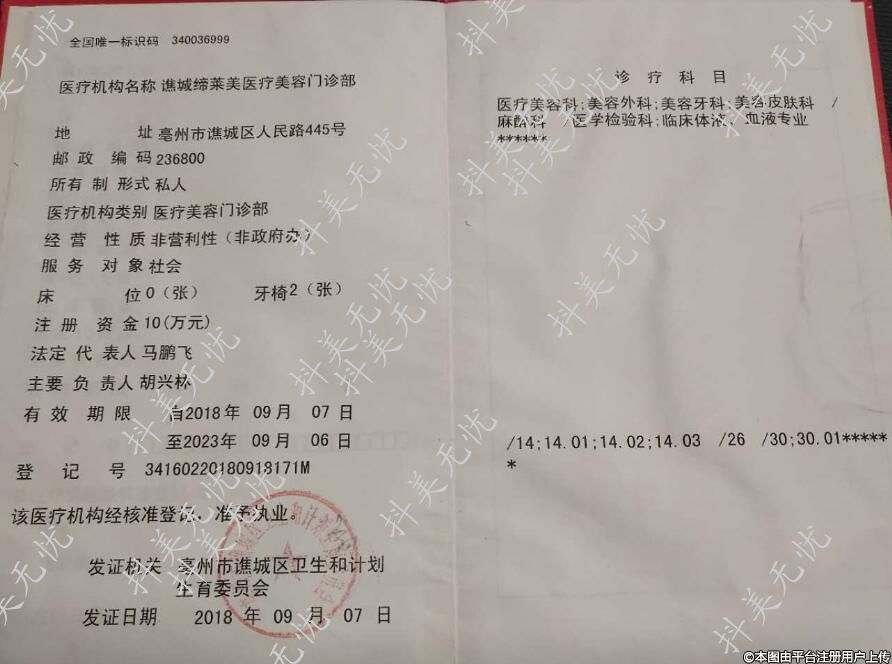 全国唯一标识码 340036999
医疗机构名称 谯城缔莱美医疗美容门诊部
地 址 亳州市谯城区人民路445号
邮政 编码 236800
所有 制 形式 私人
医疗机构类别 医疗美容门诊部
经 营 性 质 非营利性（非政府办）
服 务 对 象 社会
床 位 0（张） 牙椅2（张）
注 册 资 金 10(万元)
法定 代 表人 马鹏飞
主要 负 责人 胡兴林
有 效 期 限 自2018年 09月 07 日
至2023年 09月 06 日
登 记 号 34160220180918171M
该医疗机构经核准登记，准予执业。
发证机关 亳州市谯城区卫生和计划
生育委员会
发证日期 2018 年 09 月 07 日
诊 疗 科 目
医疗美容科;美容外科;美容牙科;美容皮肤科 /
麻醉科 /医学检验科;临床体液、血液专业
******
/14;14.01;14.02;14.03 /26 /30;30.01*****
*
抖美无忧
©本图由平台注册用户上传